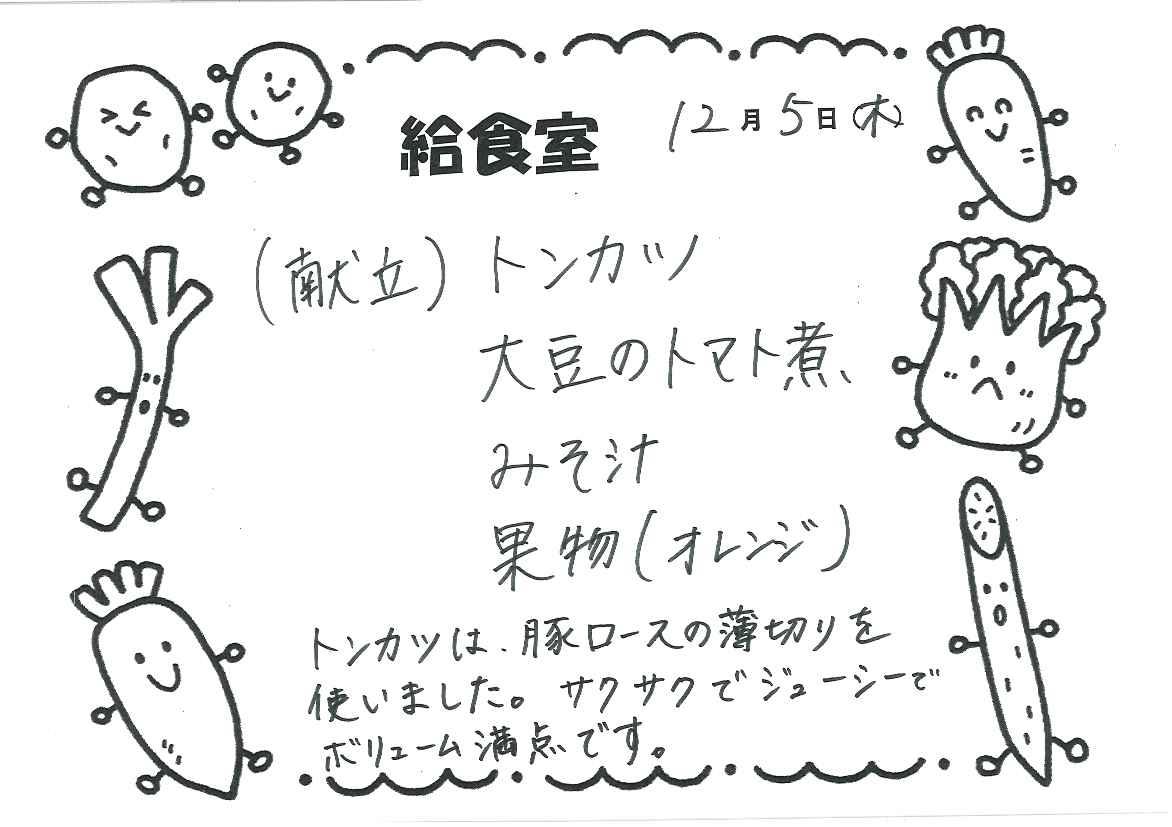 給食室
12月5日(木)
(献立) トンカツ
大豆のトマト煮
みそ汁
果物(オレンジ)
トンカツは、豚ロースの薄切りを
使いました。サクサクでジューシーで
ボリューム満点です。